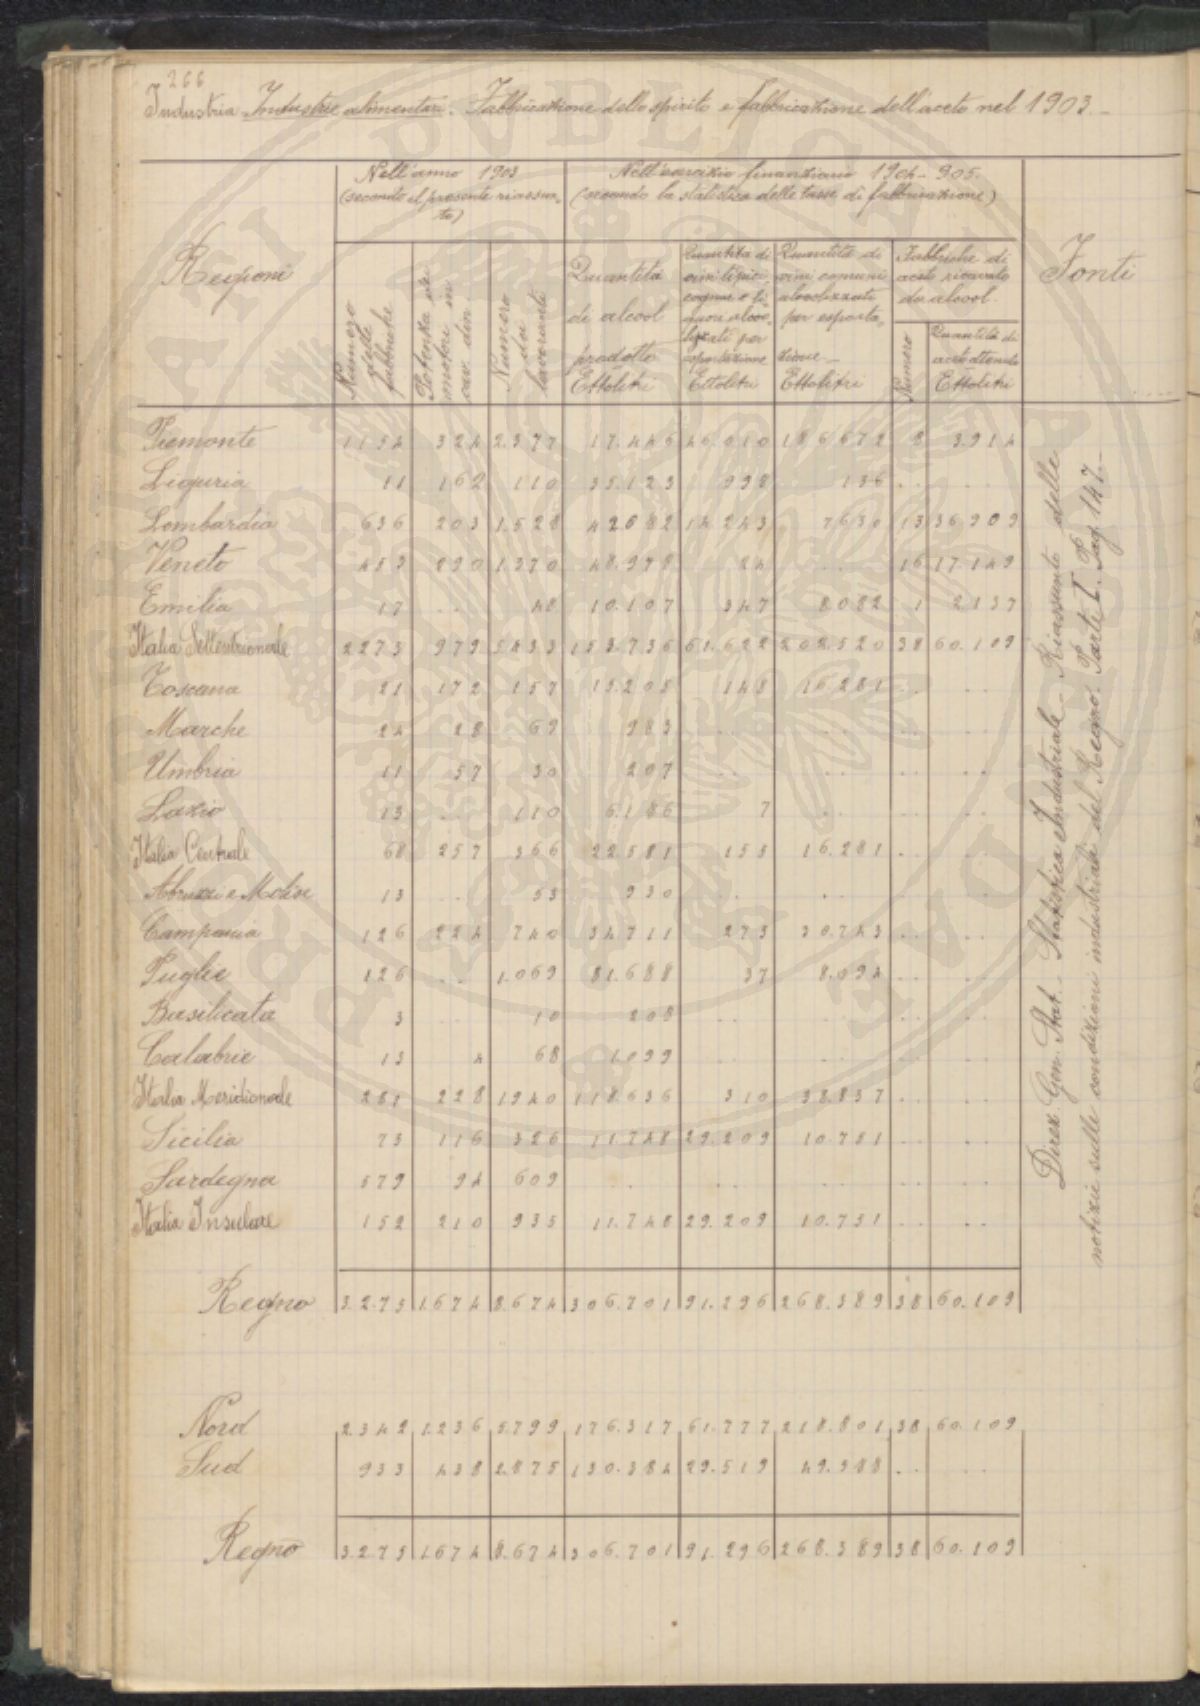 266
Industria Industrie alimentari. Fabbricazione dello spirito e fabbricazione dell'aceto nel 1903.
Regioni
Nell'anno 1903
(secondo il presente riassunto)
Nell'esercizio finanziario 1904-905.
(secondo la statistica delle tasse di fabbricazione)
Fonti
Numero delle fabbriche
Potenza dei motori in cav. din.
Numero dei lavoranti
Quantità di alcool prodotto Ettolitri
Quantità di vini tipici, cognac e liquori alcoolizzati per esportazione Ettolitri
Quantità di vini comuni alcoolizzati per esportazione Ettolitri
Fabbriche di aceto ricavato da alcool.
Numero
Quantità di aceto ottenuto Ettolitri
Piemonte 1154 324 2.377 17.446 46.010 186672 8 3.914
Liguria 11 162 110 35.123 998 136 .. ..
Lombardia 636 203 1.528 42082 14243 7630 13 36909
Veneto 453 290 1370 48.978 24 .. 16 17.149
Emilia 17 .. 48 10.107 347 8.082 1 2137
Italia Settentrionale 2273 979 5433 153.736 61.622 202.520 38 60.109
Toscana 21 172 157 15.205 148 16281 .. ..
Marche 24 28 69 983 .. .. .. ..
Umbria 11 57 30 207 .. .. .. ..
Lazio 13 .. 110 6.186 7 .. .. ..
Italia Centrale 69 257 366 22581 155 16.281 .. ..
Abruzzi e Molise 13 .. 53 930 .. .. .. ..
Campania 126 224 740 34711 273 30.743 .. ..
Puglie 126 .. 1.069 81.688 37 8.094 .. ..
Basilicata 3 .. 10 208 .. .. .. ..
Calabrie 13 4 68 1.099 .. .. .. ..
Italia Meridionale 281 228 1940 118.636 310 38.837 .. ..
Sicilia 73 116 326 11.748 29.209 10.751 .. ..
Sardegna 579 94 609 .. .. .. .. ..
Italia Insulare 152 210 935 11.748 29.209 10.751 .. ..
Regno 3.275 1.674 8.674 306.701 91.296 268.389 38 60.109
Nord 2.342 1.236 5.799 176.317 61.777 218.801 38 60.109
Sud 933 438 2.875 130.384 29.519 49.588 .. ..
Regno 3.275 1.674 8.674 306.701 91.296 268.389 38 60.109
Direz. Gen. Stat. - Statistica Industriale - Riassunto delle
notizie sulle condizioni industriali del Regno. Parte I. Pag. 147.-